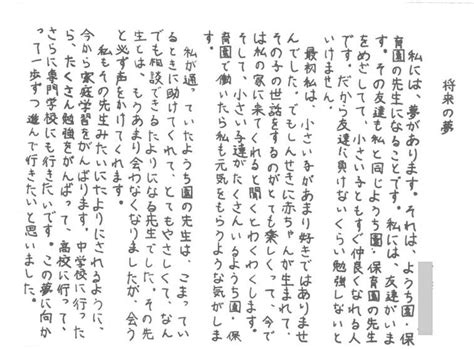 将来の夢
私には、夢があります。それは、ようち園・保
育園の先生になることです。私には、友達がいま
す。その友達も私と同じようち園・保育園の先生
をめざしてて、小さい子ともすぐ仲良くなれる人
です。だから友達に負けないくらい勉強しないと
いけません。
最初私は、小さい子があまり好きではありませ
んでした。でもしんせきに赤ちゃんが生まれて、
その子の世話をするのがとても楽しくって、今で
は私の家に来てくれると聞くとわくわくします。
そして、小さい子達がたくさんいるようち園・保
育園で働いたら私も元気をもらうような気がしま
す。
私が通っていたようち園の先生は、こまってい
るときに助けてくれて、とてもやさしくて、なん
でも相談できるたよりになる先生でした。その先
生とは、もうあまり会わなくなりましたが、会う
と必ず声をかけてくれます。
私もその先生みたいにたよりにされるように、
今から家庭学習をがんばります。中学校に行った
ら、たくさん勉強をがんばって、高校に行って、
さらに専門学校にも行きたいです。この夢に向か
って一歩ずつ進んで行きたいと思いました。